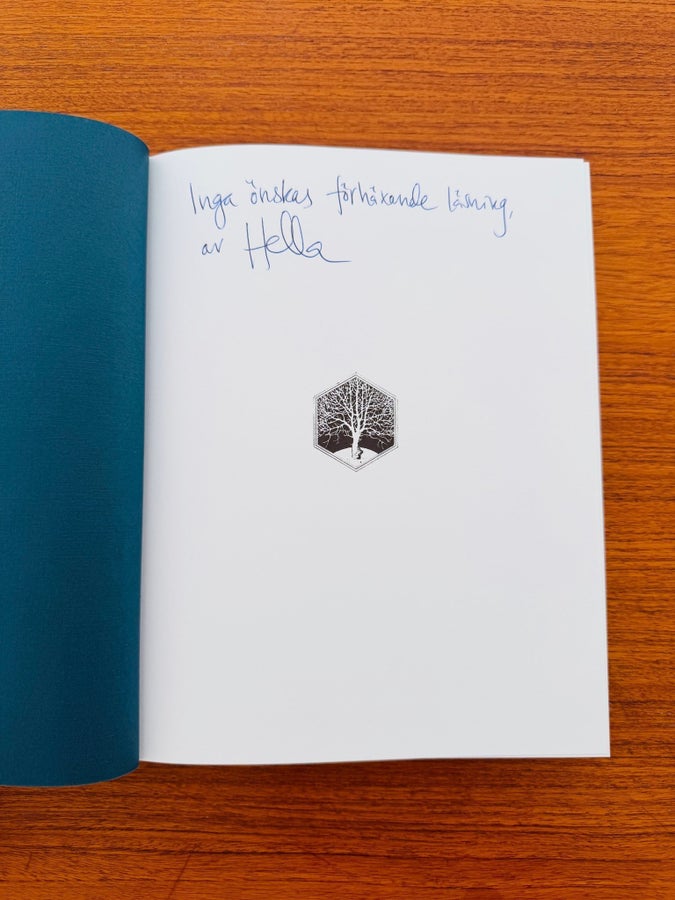 Inga önskas förhäxande läsning,
av Hella